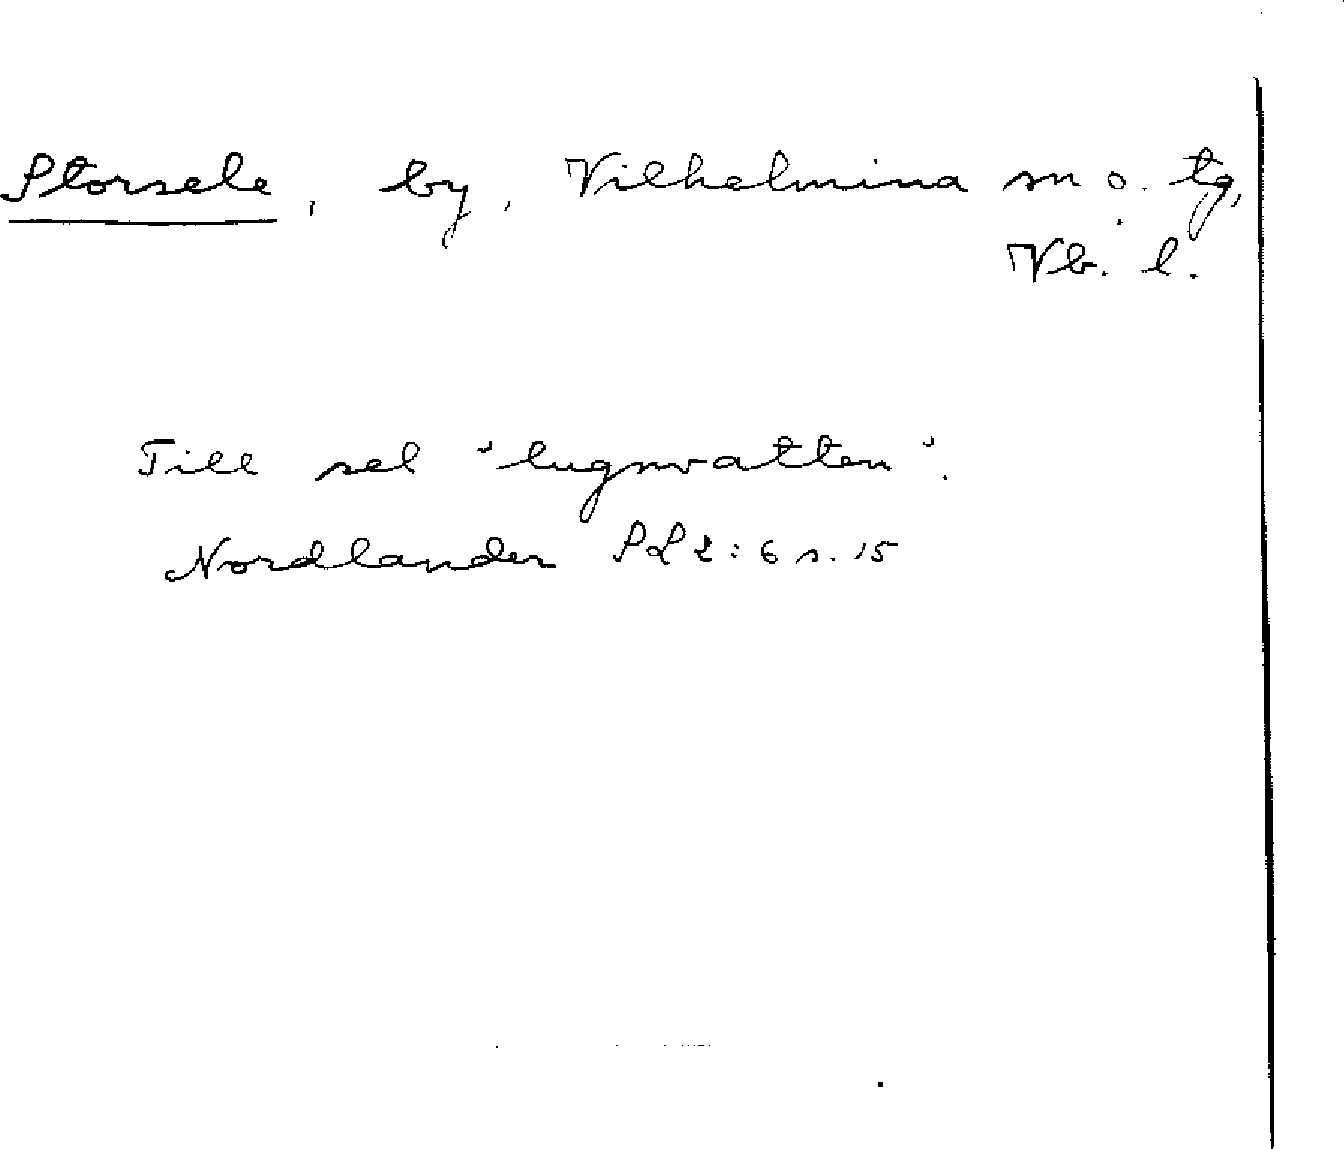 Storsele, by, Vilhelmina sn o. tg,
Vb. l.
Till sel "lugnvatten".
Nordlander PL 2:6 s. 15